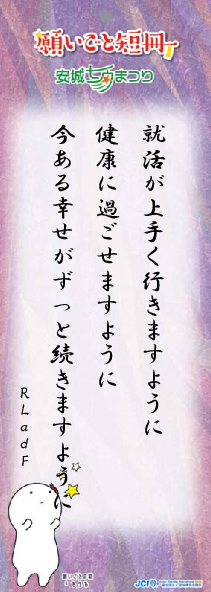 願いごと短冊
安城七夕まつり
就活が上手く行きますように
健康に過ごせますように
今ある幸せがずっと続きますように
RLadF
JCI